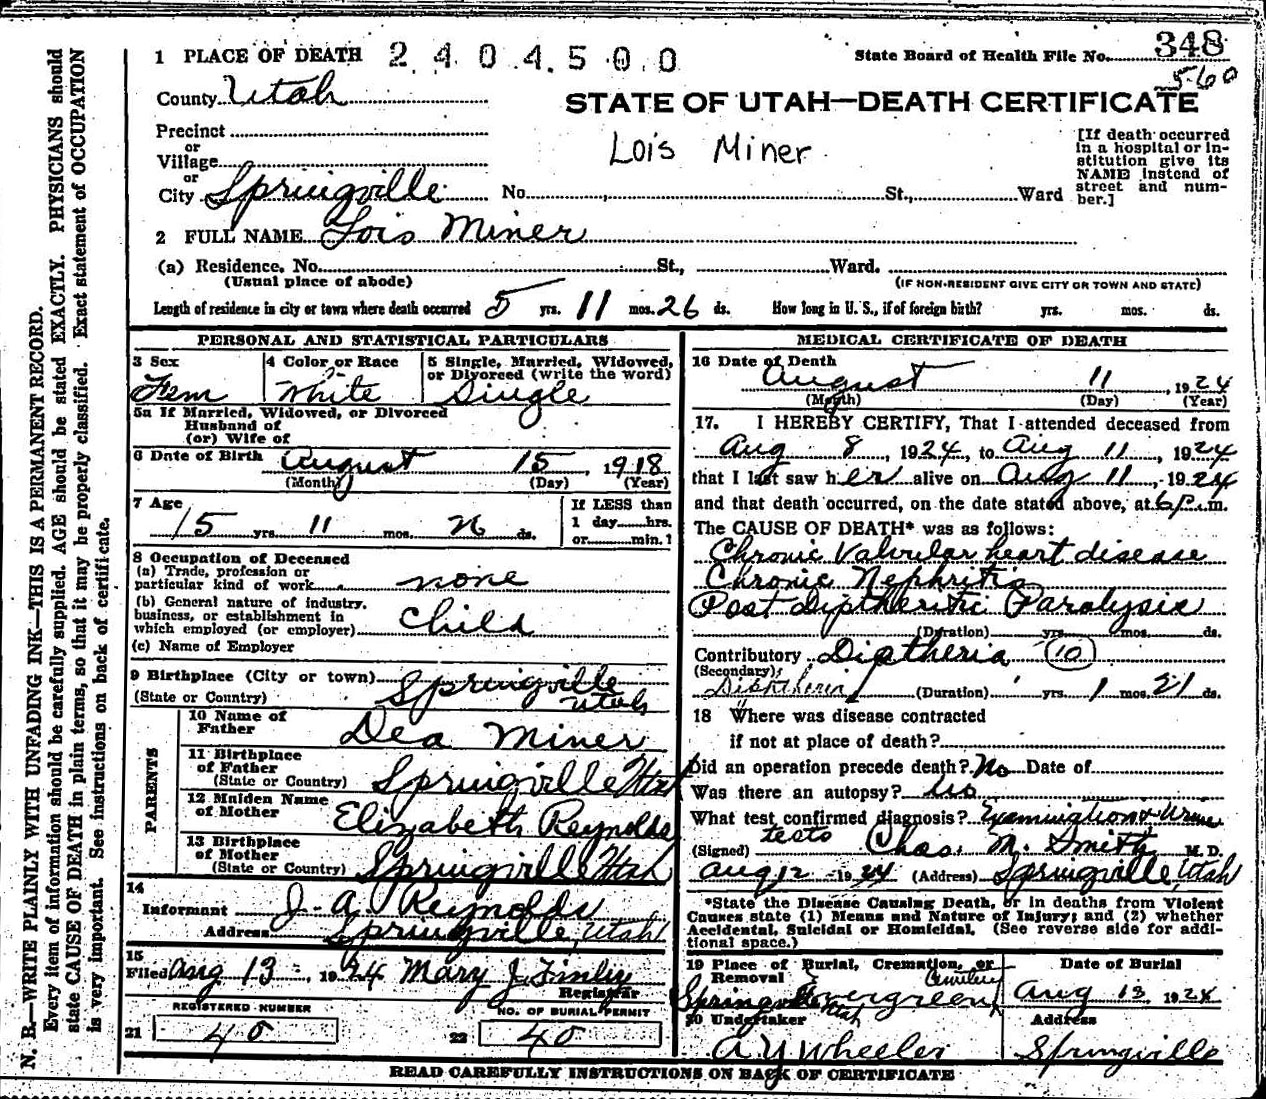 1 PLACE OF DEATH 2404500 State Board of Health File No. 348
560
County Utah STATE OF UTAH—DEATH CERTIFICATE
Precinct
or
Village Lois Miner
or
City Springville No. St., Ward
[If death occurred
in a hospital or in-
stitution give its
NAME instead of
street and num-
ber.]
2 FULL NAME Lois Miner
(a) Residence. No. St., Ward.
(Usual place of abode) (IF NON-RESIDENT GIVE CITY OR TOWN AND STATE)
Length of residence in city or town where death occurred 5 yrs. 11 mos. 26 ds. How long in U. S., if of foreign birth? yrs. mos. ds.
PERSONAL AND STATISTICAL PARTICULARS
3 Sex 4 Color or Race 5 Single, Married, Widowed,
or Divorced (write the word)
Fem White Single
5a If Married, Widowed, or Divorced
Husband of
(or) Wife of
6 Date of Birth August 15, 1918
(Month) (Day) (Year)
7 Age If LESS than
5 yrs. 11 mos. 26 ds. 1 day hrs.
or min.?
8 Occupation of Deceased
(a) Trade, profession or
particular kind of work none
(b) General nature of industry,
business, or establishment in
which employed (or employer) child
(c) Name of Employer
9 Birthplace (City or town) Springville
(State or Country) Utah
PARENTS
10 Name of
Father Dea Miner
11 Birthplace
of Father
(State or Country) Springville Utah
12 Maiden Name
of Mother Elizabeth Reynolds
13 Birthplace
of Mother
(State or Country) Springville Utah
14
Informant J. A. Reynolds
Address Springville, Utah
15
Filed Aug 13 1924 Mary J. Finley
Registrar
REGISTERED NUMBER NO. OF BURIAL PERMIT
21 40 22 40
MEDICAL CERTIFICATE OF DEATH
16 Date of Death
August 11, 1924
(Month) (Day) (Year)
17. I HEREBY CERTIFY, That I attended deceased from
Aug 8, 1924, to Aug 11, 1924
that I last saw her alive on Aug 11, 1924
and that death occurred, on the date stated above, at 6 p.m.
The CAUSE OF DEATH* was as follows:
Chronic Valvular heart disease
Chronic Nephritis
Post Diptheritic Paralysis
(Duration) yrs. mos. ds.
Contributory Diptheria 10
(Secondary)
Diphtheria (Duration) yrs. 1 mos. 21 ds.
18 Where was disease contracted
if not at place of death?
Did an operation precede death? No Date of
Was there an autopsy? no
What test confirmed diagnosis? Examination & Urine
tests
(Signed) Chas. M. Smith M. D.
Aug 12 1924 (Address) Springville, Utah
*State the Disease Causing Death, or in deaths from Violent
Causes state (1) Means and Nature of Injury; and (2) whether
Accidental, Suicidal or Homicidal. (See reverse side for addi-
tional space.)
19 Place of Burial, Cremation, or Date of Burial
Removal Cemetery
Springville Evergreen Aug 13 1924
Utah
20 Undertaker Address
A Y Wheeler Springville
READ CAREFULLY INSTRUCTIONS ON BACK OF CERTIFICATE
N. B.—WRITE PLAINLY WITH UNFADING INK—THIS IS A PERMANENT RECORD.
Every item of information should be carefully supplied. AGE should be stated EXACTLY. PHYSICIANS should
state CAUSE OF DEATH in plain terms, so that it may be properly classified. Exact statement of OCCUPATION
is very important. See instructions on back of certificate.